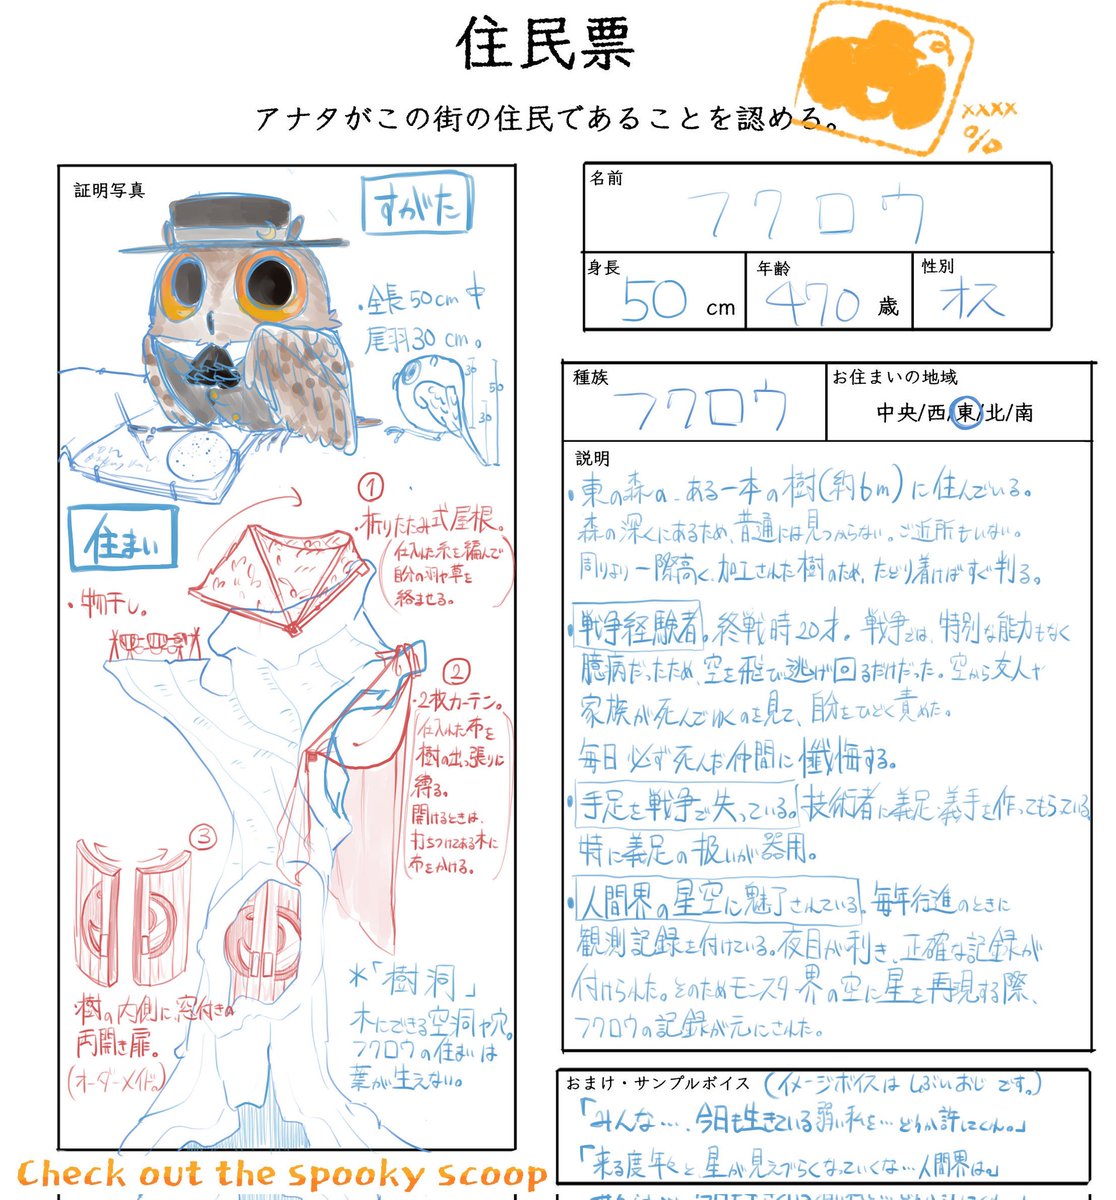 住民票
アナタがこの街の住民であることを認める。
xxxx
0/0
証明写真
すがた
・全長50cm中
尾羽30cm。
30
50
30
住まい
・物干し。
①
・折りたたみ式屋根。
(仕入れた糸を編んで
自分の羽や草を
絡ませる。)
②
・2枚カーテン。
(仕入れた布を
樹の出っ張りに
縛る。
開けるときは、
打ちつけてある木に
布をかける。)
③
・樹の内側に、窓付きの
両開き扉。
(オーダーメイド。)
*「樹洞」
木にできる空洞や穴。
フクロウの住まいは
葉が生えない。
名前
フクロウ
身長
50 cm
年齢
470 歳
性別
オス
種族
フクロウ
お住まいの地域
中央/西/東/北/南
説明
・東の森の、ある一本の樹(約6m)に住んでいる。
森の深くにあるため、普通には見つからない。ご近所もいない。
周りより一際高く、加工された樹のため、たどり着けばすぐ判る。
・戦争経験者。終戦時20才。戦争では、特別な能力もなく
臆病だったため、空を飛び逃げ回るだけだった。空から友人や
家族が死んでゆくのを見て、自分をひどく責めた。
毎日必ず死んだ仲間に懺悔する。
・手足を戦争で失っている。技術者に義足・義手を作ってもらっている。
特に義足の扱いが器用。
・人間界の星空に魅了されている。毎年行進のときに
観測記録を付けている。夜目が利き、正確な記録が
付けられた。そのためモンスター界の空に星を再現する際、
フクロウの記録が元にされた。
おまけ・サンプルボイス (イメージボイスはしぶいおじです。)
「みんな…、今日も生きている弱い私を…どうか許してくれ。」
「来る度年々と星が見えづらくなっていくな…人間界は。」
Check out the spooky scoop